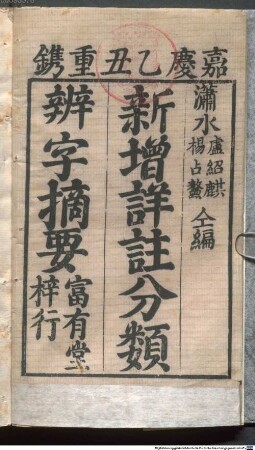 嘉慶乙丑重鐫
瀟水盧紹麒楊占鰲仝編
新增詳註分類
辨字摘要
富有堂梓行